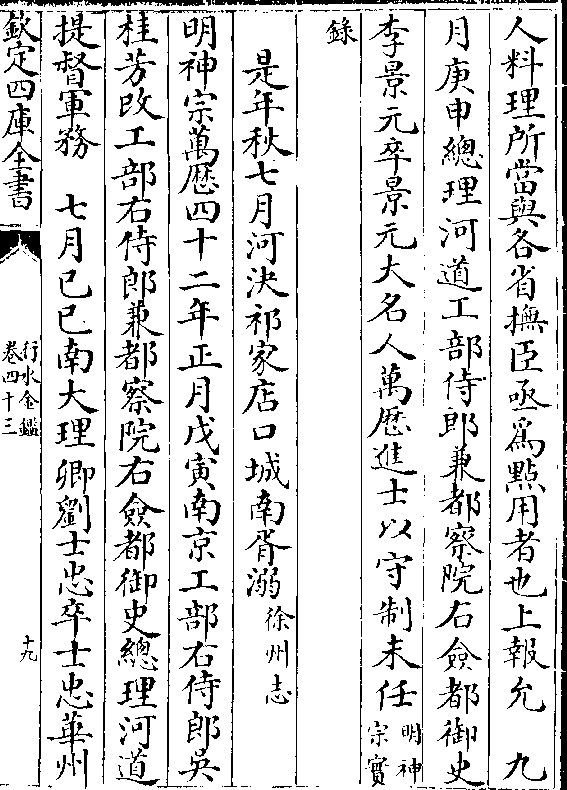 人料理所當與各省撫臣亟爲點用者也上報允　九
月庚申總理河道工部侍郎兼都察院右僉都御史
李景元卒景元大名人萬歷進士以守制未任明神宗實
錄
是年秋七月河決祁家店口城南胥溺徐州志
明神宗萬歷四十二年正月戊寅南京工部右侍郎吳
桂芳改工部右侍郎兼都察院右僉都御史總理河道
提督軍務　七月己巳南大理卿劉士忠卒士忠華州
欽定四庫全書
行水金鑑
卷四十三
十九